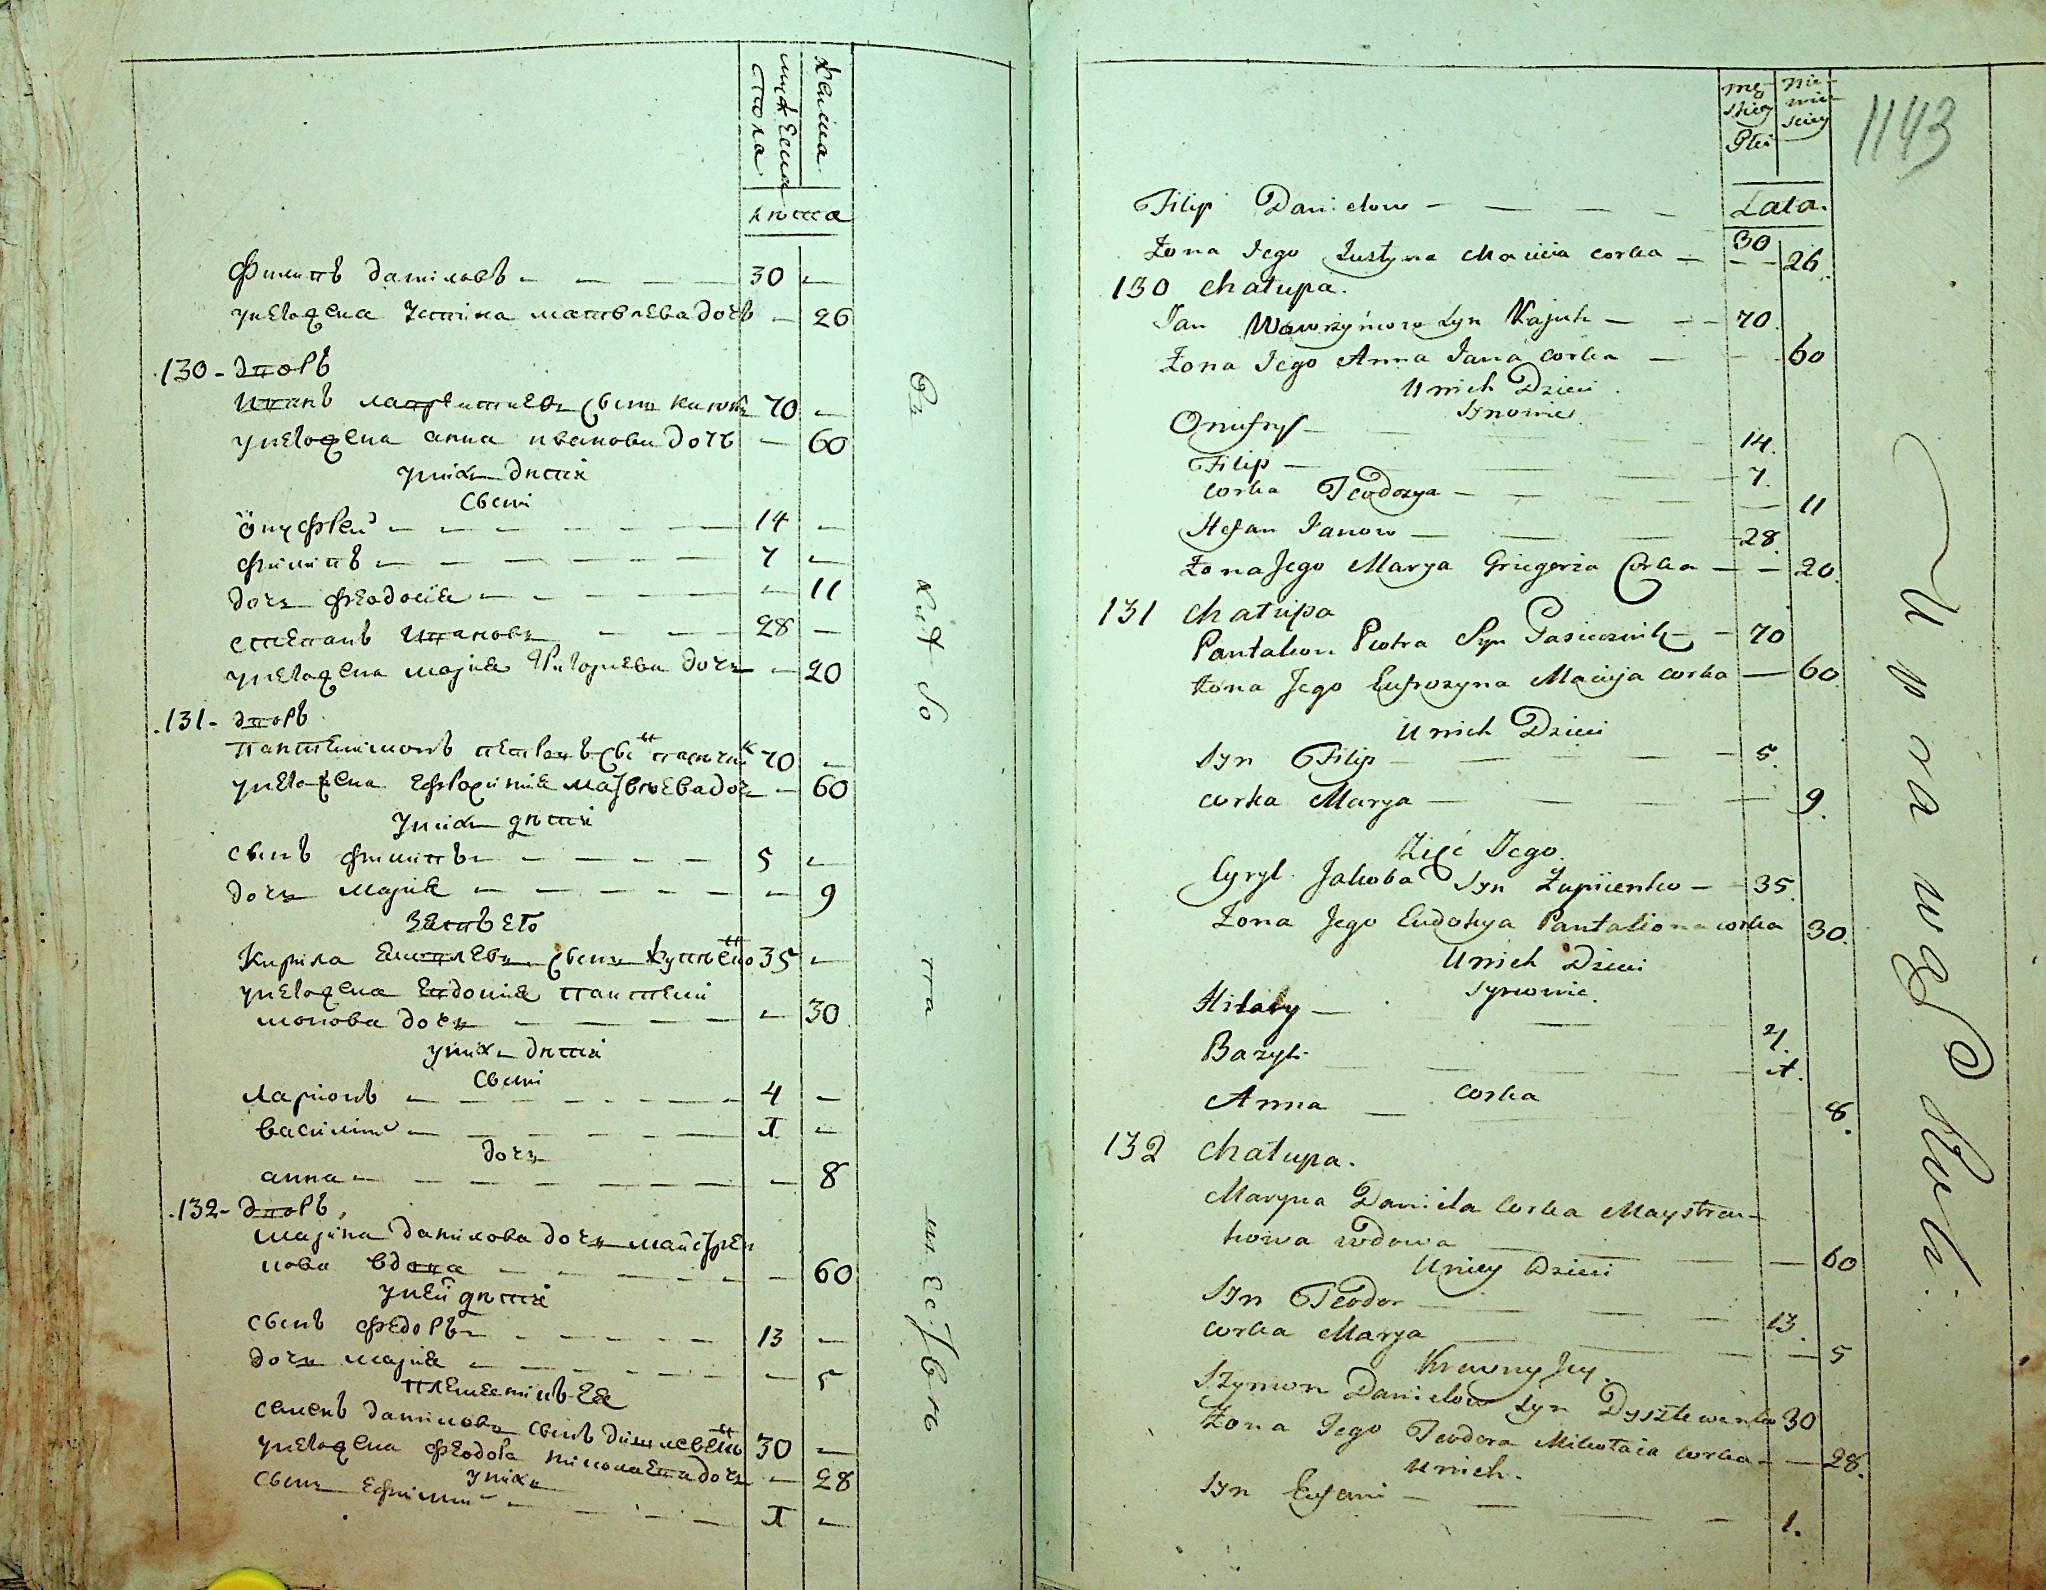 мужеска
пола
женска
лѣта
Филипъ Даниловъ — 30 —
у него жена Устина Матвѣева дочь — 26
130 - Дворъ
Иванъ Лаврентиевъ сынъ 70 —
у него жена Анна Иванова дочь — 60
у нихъ дѣти
Сыни
Онуфрей — 14 —
Филипъ — 7 —
дочъ Феодосия — 11
Степанъ Ивановъ — 28 —
у него жена Мария Григориева дочъ — 20
131 - Дворъ
Пантелимонъ Петровъ сынъ 70 —
у него жена Ефросиния Матвѣева дочъ — 60
у нихъ дѣти
Сынъ Филипъ — 5 —
дочъ Мария — 9
Зять его
Кирила Яковлевъ сынъ 35 —
у него жена Евдокия Пантели
монова дочъ — 30
у нихъ дѣти
Сыни
Ларионъ — 4 —
Василий — 1 —
дочъ
Анна — 8
132 - Дворъ
Марина Данилова дочъ Майстрен
кова вдова — 60
у ней дѣти
Сынъ Федоръ — 13 —
дочъ Мария — 5
племенникъ ея
Семенъ Даниловъ сынъ 30 —
у него жена Феодора Николаева дочъ — 28
у нихъ
Сынъ Ефимий — 1 —
1143
męskiey Płci
niewieskiey
Lata.
Filip Danielow — 30
Żona Jego Justyna Macieia corka — 26.
130 Chałupa.
Jan Wawrzyńcow Syn Kajuk — 70.
Żona Jego Anna Jana corka — 60
U nich Dzieci
Synowie
Onufry — 14.
Filip — 7.
corka Teodozya — 11
Stefan Janow — 28.
Żona Jego Marya Gregorza Corka — 20.
131 Chałupa
Pantalion Piotra Syn Pasiecznik — 70
Żona Jego Eufrozyna Macieja corka — 60
U nich Dzieci
Syn Filip — 5.
corka Marya — 9.
Zięć Jego.
Cyryl Jakoba Syn — 35.
Żona Jego Eudokya Pantaliona corka 30.
U nich Dzieci
Synowie.
Hilary — 4.
Bazyli — 1.
corka
Anna — 8.
132 Chałupa.
Maryna Daniela Corka Maystren-
kowa wdowa — 60
U niey Dzieci
Syn Teodor — 13.
corka Marya — 5
Krewny Jey.
Szymon Danielow Syn Dysztewenko 30
Żona Jego Teodora Mikołaia Corka — 28.
U nich.
Syn Eufemi — 1.